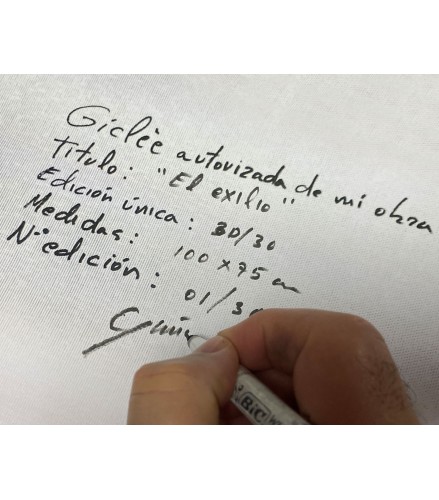 Giclèe autorizada de mi obra
Titulo: "El exilio"
Edición única: 30/30
Medidas: 100 x 75 cm
Nº edición: 01/30
BIC